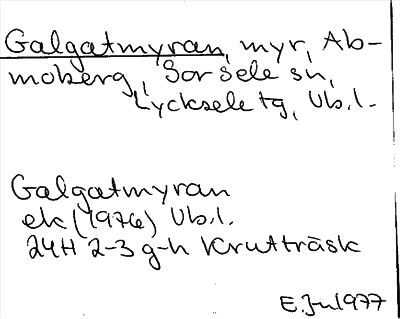 Galgatmyran, myr, Ab-
moberg, Sorsele sn,
Lycksele tg, Vb.l.
Galgatmyran
ek (1976) Vb.l.
24H 2-3 g-h Krutträsk
E.Ju 1977